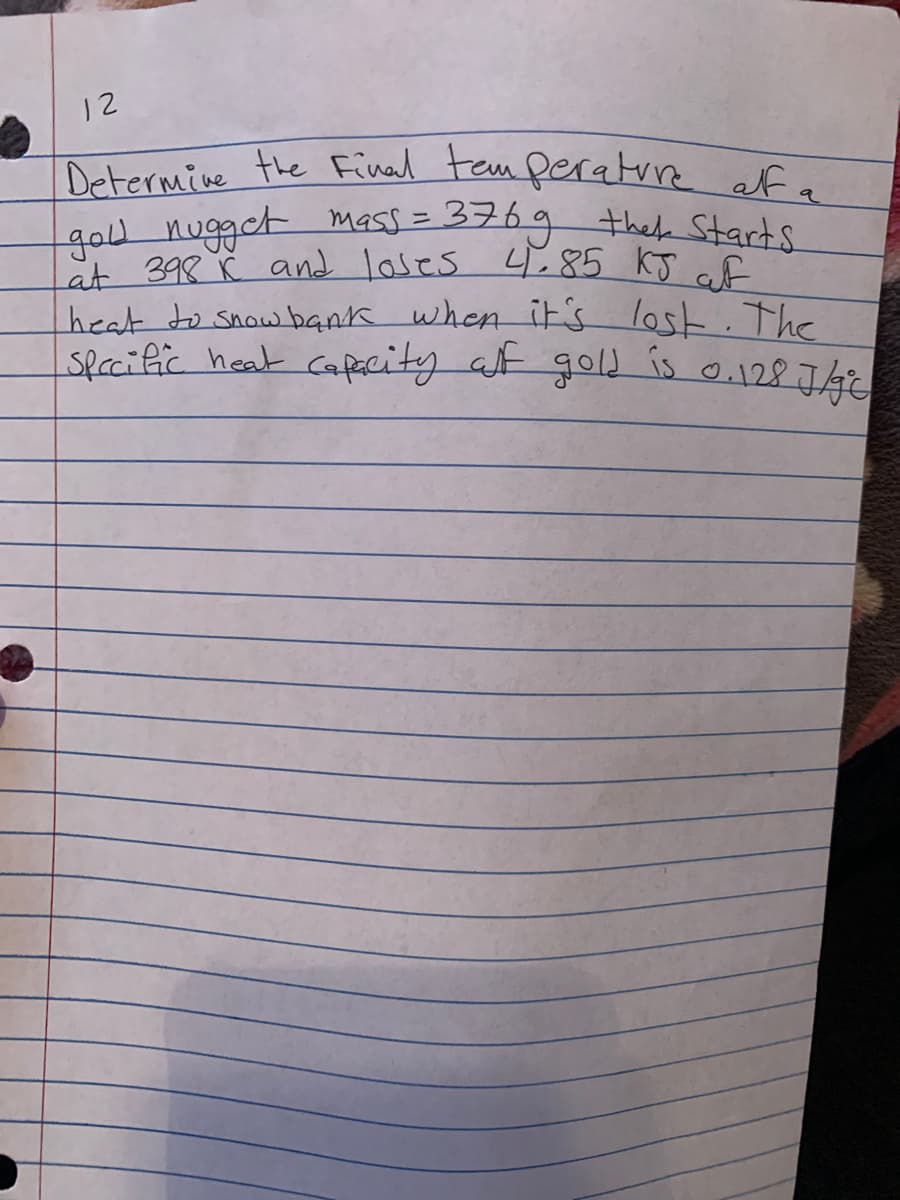 12
Determine the Final temperature of a
gold nugget mass = 376 g that starts
at 398 K and loses 4.85 KJ of
heat to snowbank when it's lost. The
specific heat capacity of gold is 0.128 J/g°c